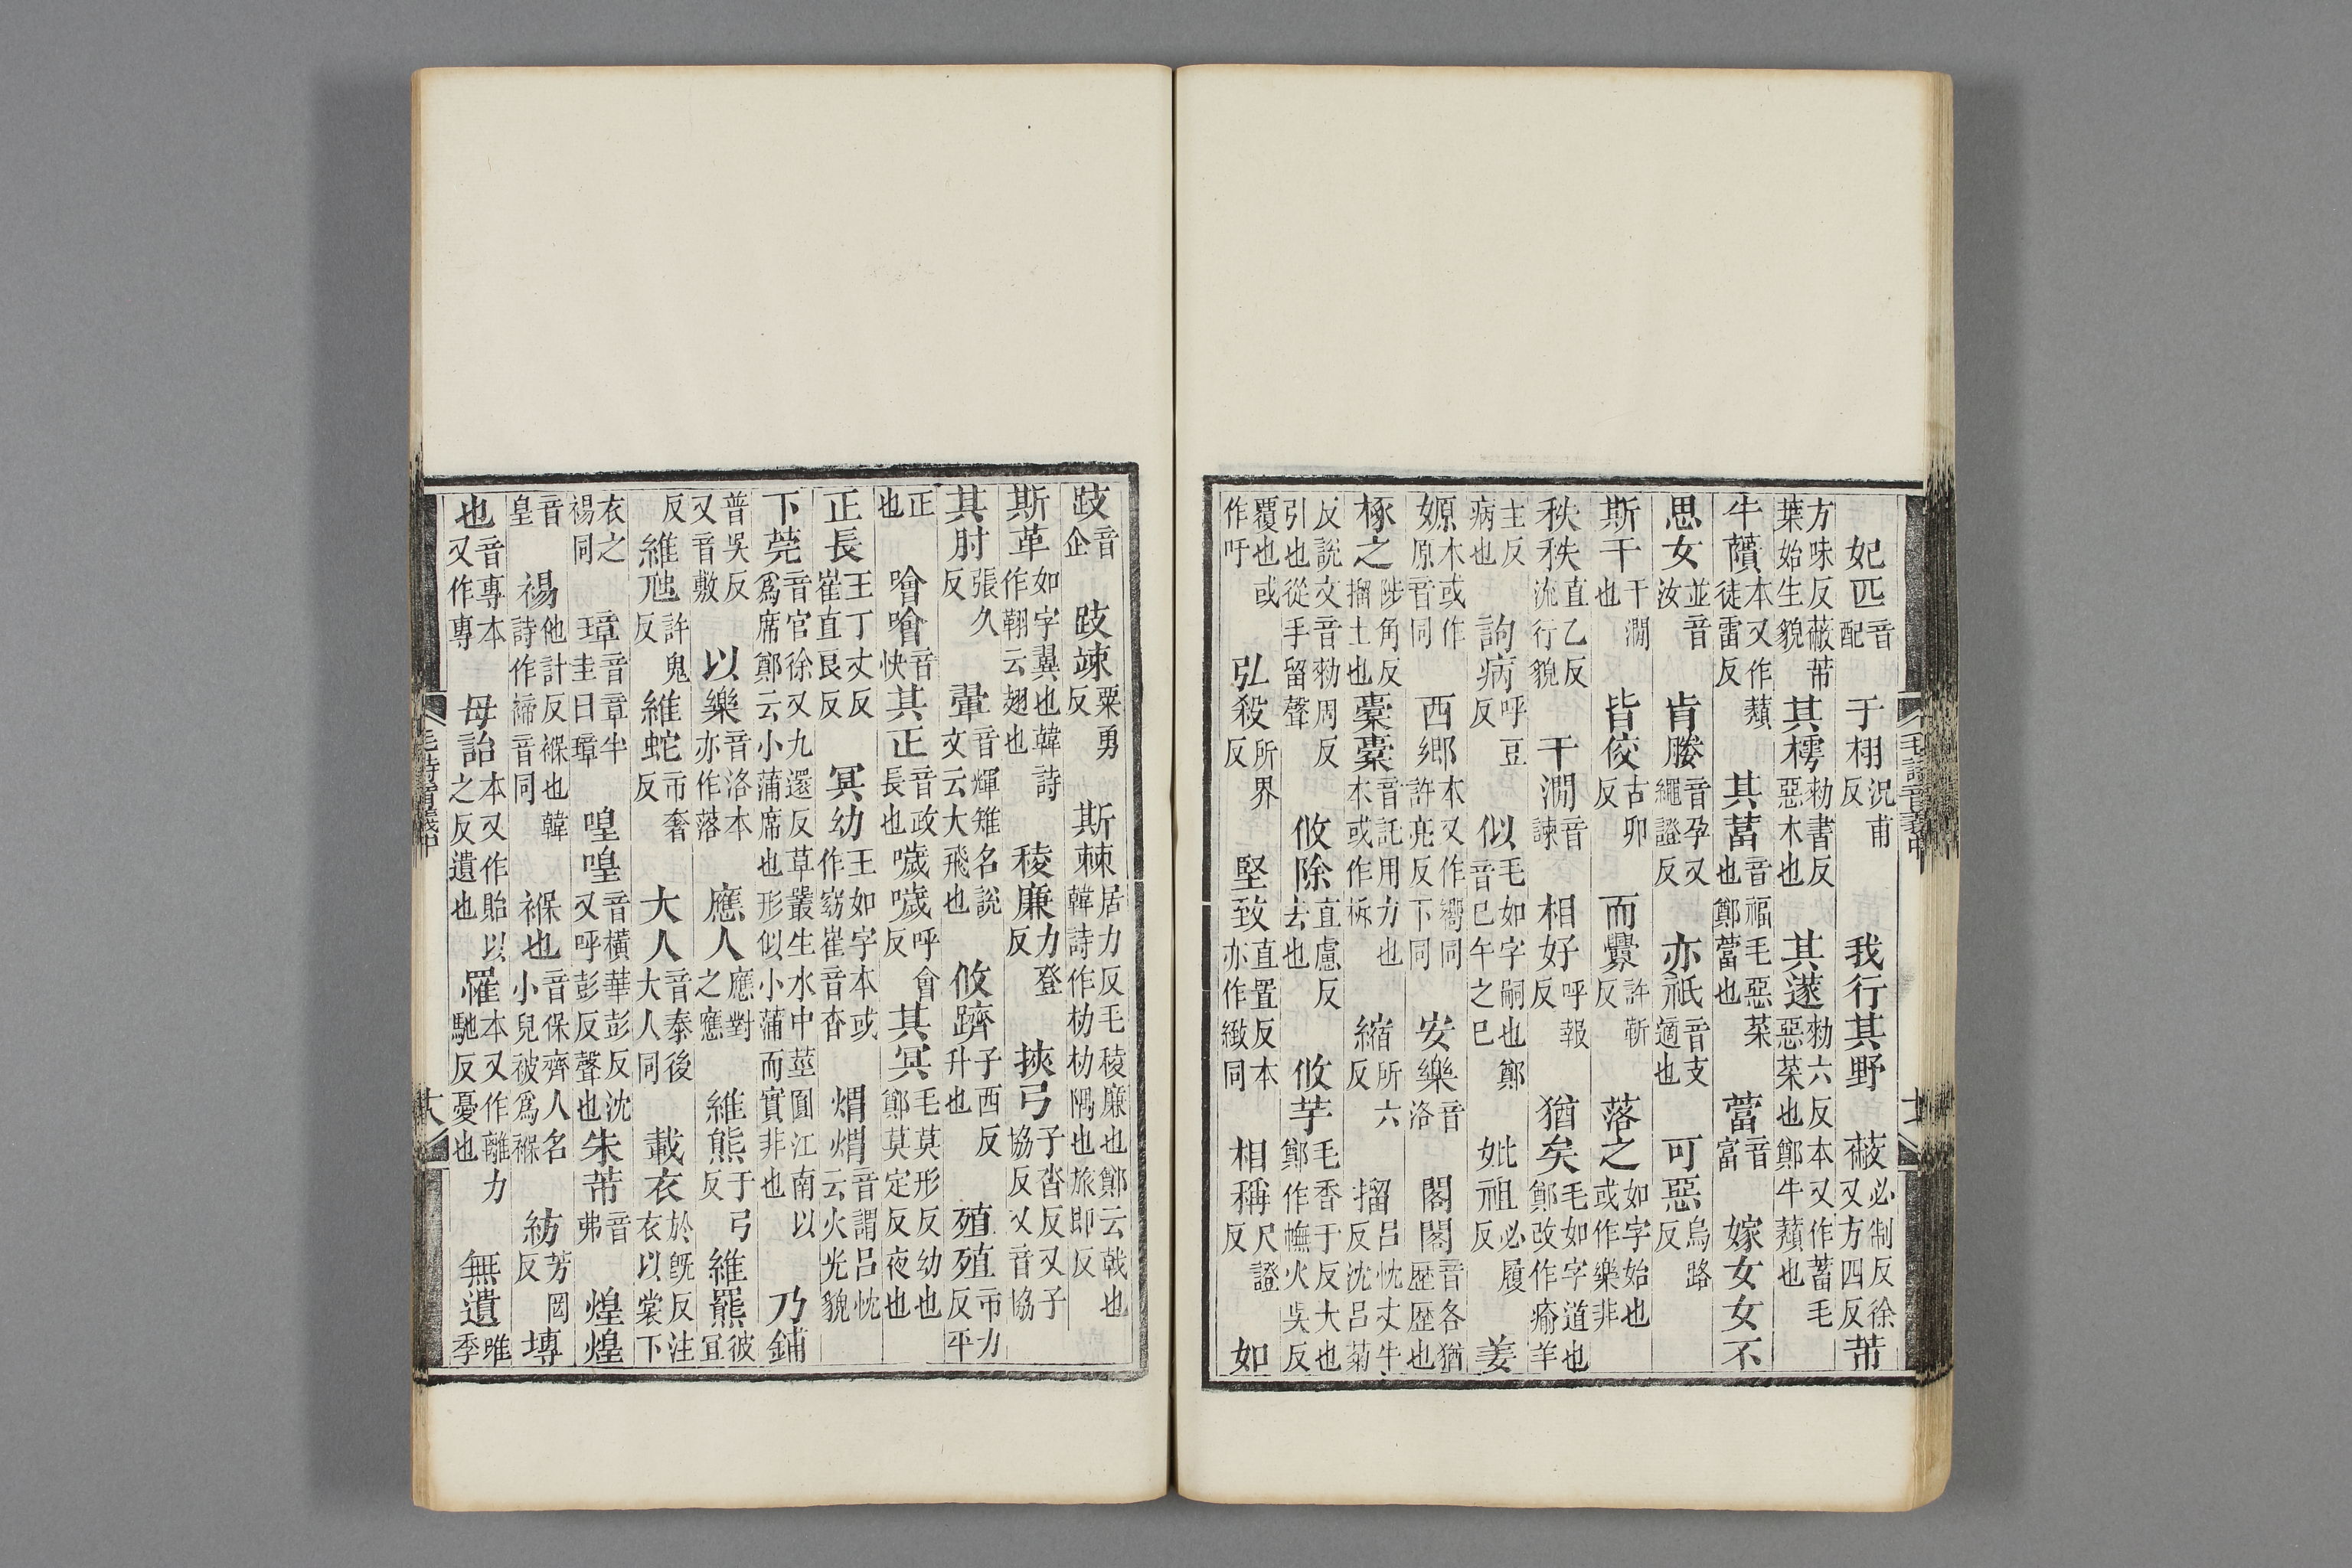 妃匹音配于栩況甫反我行其野蔽必制反徐又方四反芾
方味反蔽芾葉始生貌其樗勑書反惡木也其蓫勑六反本又作蓄毛惡菜也鄭牛蘈也
牛蘈本又作蘈徒雷反其葍音福毛惡菜也鄭䔰也䔰音富嫁女女不
思女並音汝肯媵音孕又繩證反亦祇音支適也可惡烏路反
斯干干澗也皆佼古卯反而釁許靳反落之如字始也或作樂非
秩秩直乙反流行貌干澗音諫相好呼報反猶矣毛如字道也鄭改作瘉羊
主反病也訽病呼豆反似毛如字嗣也鄭音巳午之巳妣祖必履反姜
嫄本或作原音同西鄉本又作嚮同許亮反下同安樂音洛閣閣音各猶歴歴也
椓之陟角反㨨土也橐橐音託用力也本或作柝縮所六反㨨呂忱丈牛反沈呂菊
反說文音勑周反引也從手留聲攸除直慮反去也攸芋毛香于反大也鄭作幠火吳反
覆也或作吁弘殺所界反堅致直置反本亦作緻同相稱尺證反如
跂音企跂竦粟勇反斯棘居力反毛稜廉也鄭云戟也韓詩作朸朸隅也旅即反
斯革如字翼也韓詩作䩐云翅也稜廉力登反挾弓子沓反又子協反又音協
其肘張久反翬音輝雉名說文云大飛也攸躋子西反升也殖殖市力反平
正也噲噲音快其正音政長也噦噦呼會反其冥毛莫形反幼也鄭莫定反夜也
正長王丁丈反崔直良反冥幼王如字本或作窈崔音杳煟煟音謂呂忱云火光貌
下莞音官徐又九還反草叢生水中莖圓江南以爲席鄭云小蒲席也形似小蒲而實非也乃鋪
普吳反又音敷以樂音洛本亦作落應人應對之應維熊于弓反維羆彼宜
反維虺許鬼反維蛇市奢反大人音泰後大人同載衣於旣反注衣以裳下
衣之裼同璋音章半圭曰璋喤喤音橫華彭反沈又呼彭反聲也朱芾音弗煌煌
音皇裼他計反褓也韓詩作禘音同褓也音保齊人名小兒被爲褓紡芳罔反塼
也音專本又作專毋詒本又作貽以之反遺也罹本又作離力馳反憂也無遺唯季
毛詩音義中